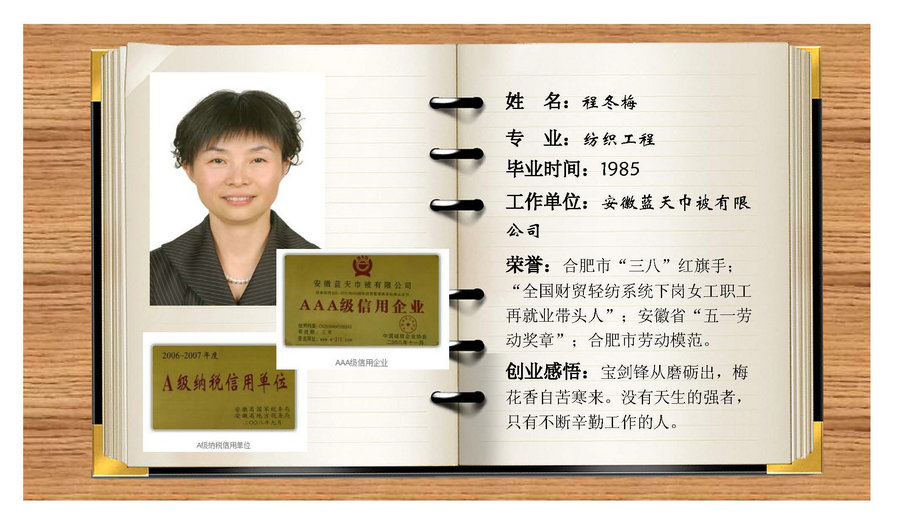 安徽蓝天巾被有限公司
AAA级信用企业
中国城市企业协会
二〇〇八年十一月
AAA级信用企业
2006-2007年度
A级纳税信用单位
安徽省国家税务局
安徽省地方税务局
二〇〇八年九月
A级纳税信用单位
姓 名：程冬梅
专 业：纺织工程
毕业时间：1985
工作单位：安徽蓝天巾被有限
公司
荣誉：合肥市“三八”红旗手；
“全国财贸轻纺系统下岗女工职工
再就业带头人”；安徽省“五一劳
动奖章”；合肥市劳动模范。
创业感悟：宝剑锋从磨砺出，梅
花香自苦寒来。没有天生的强者，
只有不断辛勤工作的人。